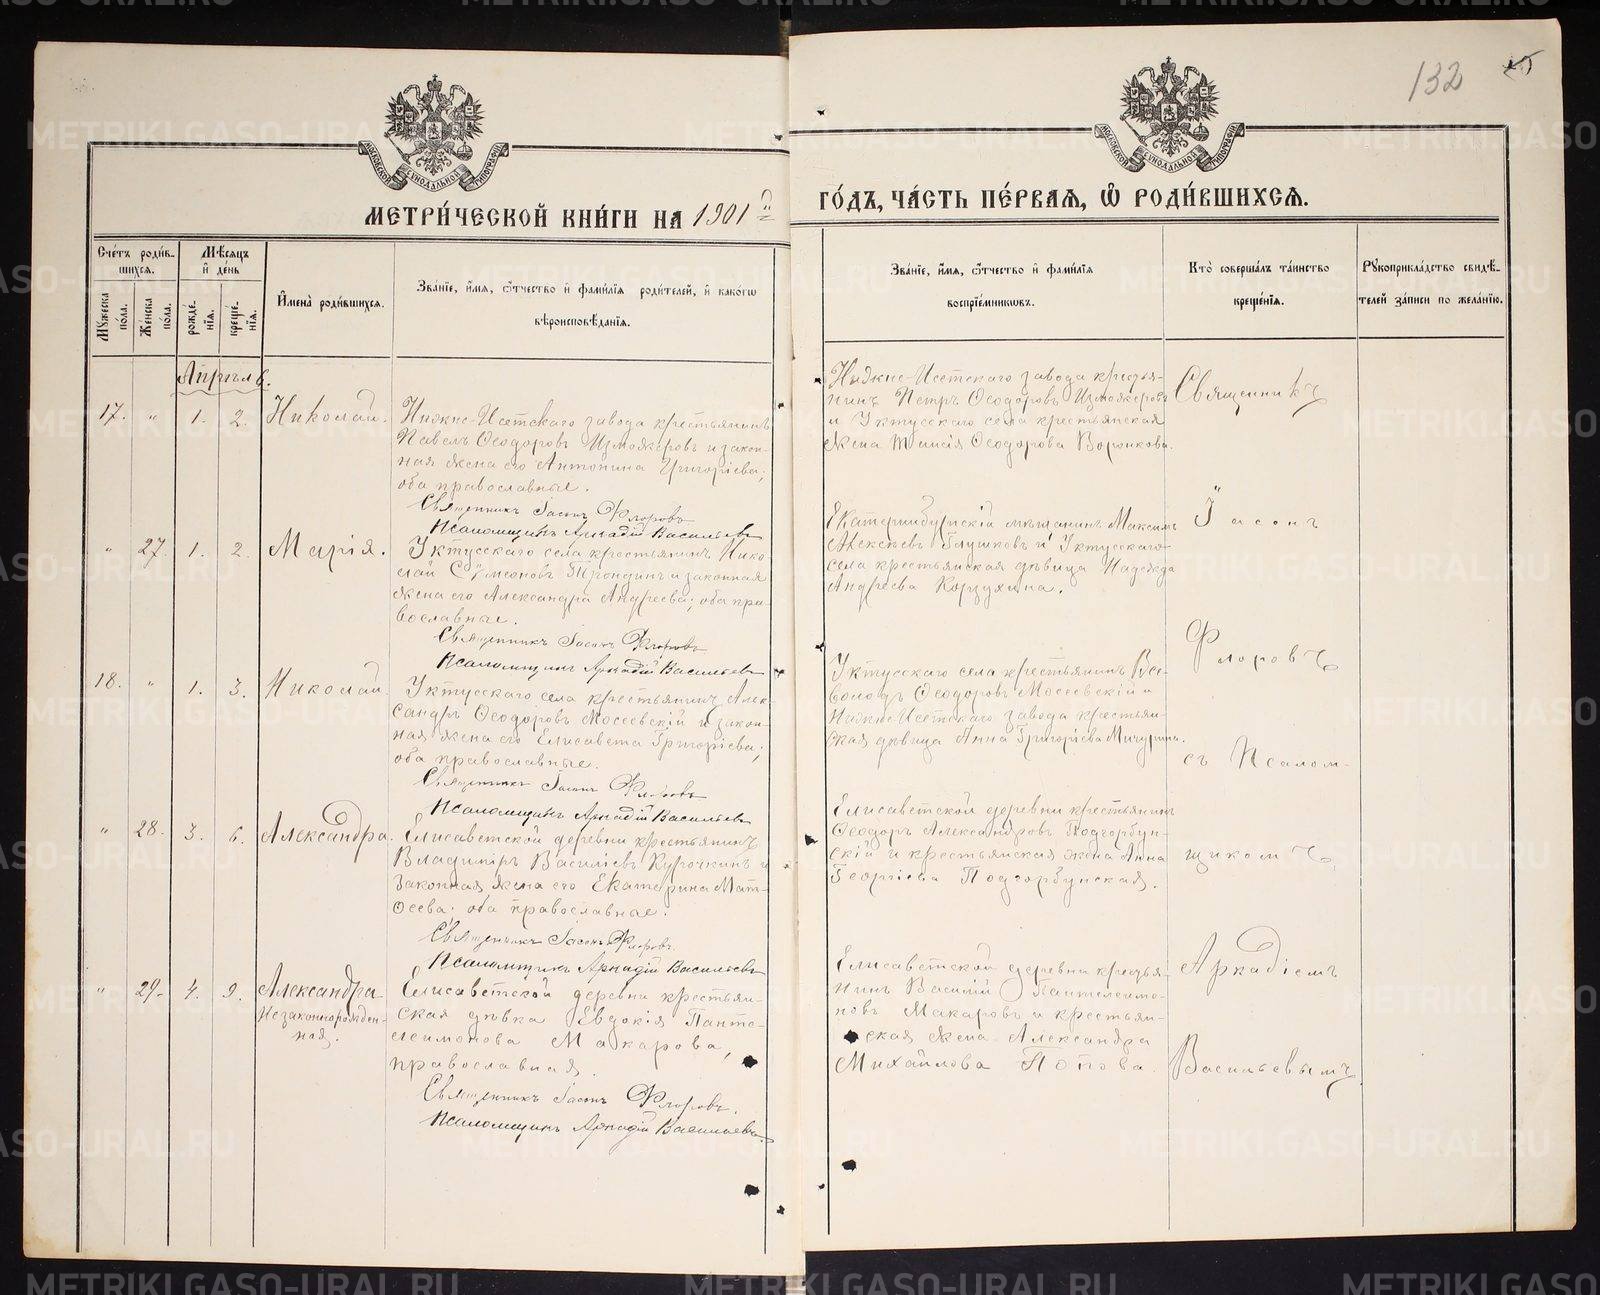 132
МОСКОВСКОЙ СѴНОДАЛЬНОЙ ТИПОГРАФІИ
МОСКОВСКОЙ СѴНОДАЛЬНОЙ ТИПОГРАФІИ
МЕТРИ́ЧЕСКОЙ КНИ́ГИ НА 1901й
ГО́ДЪ, ЧА́СТЬ ПЕ́РВАѦ, Ѡ҆ РОДИ́ВШИХСѦ.
Сче́тъ роди́в-
шихсѧ.
Мꙋжеска по́ла.
Же́нска по́ла.
Мѣ́сѧцъ
и҆ де́нь
рожде́-
нїѧ.
креще́-
нїѧ.
И҆мена̀ роди́вшихсѧ.
Зва́нїе, и҆́мѧ, ѻ҆́тчество и҆ фами́лїѧ роди́телей, и҆ како́гѡ
вѣроисповѣ́данїѧ.
Зва́нїе, и҆́мѧ, ѻ҆́тчество и҆ фами́лїѧ
воспрїе́мникѡвъ.
Кто̀ соверша́лъ та́инство
креще́нїѧ.
Рꙋкоприкла́дство свидѣ́-
телей за́писи по жела́нїю.
Апрѣль.
17. " 1. 2. Николай.
Нижне-Исетскаго завода крестьянинъ
Павелъ Ѳеодоровъ Изможеровъ и закон-
ная жена его Антонина Григоріева;
оба православные.
Священникъ Іасонъ Флоровъ
Псаломщикъ Аркадій Васильевъ
Нижне-Исетскаго завода крестья-
нинъ Петръ Ѳеодоровъ Изможеровъ
и Уктусскаго села крестьянская
жена Таисія Ѳеодорова Воронкова.
Священникъ
" 27. 1. 2. Марія.
Уктусскаго села крестьянинъ Нико-
лай Сѵмеоновъ Трондинъ и законная
жена его Александра Андреева; оба пра-
вославные.
Священникъ Іасонъ Флоровъ
Псаломщикъ Аркадій Васильевъ
Екатеринбургскій мѣщанинъ Максимъ
Алексѣевъ Глушковъ и Уктусскаго
села крестьянская дѣвица Надежда
Андреева Корзухина.
Іасонъ
Флоровъ
18. " 1. 3. Николай
Уктусскаго села крестьянинъ Алек-
сандръ Ѳеодоровъ Мосеевскій и закон-
ная жена его Елисавета Григоріева;
оба православные.
Священникъ Іасонъ Флоровъ
Псаломщикъ Аркадій Васильевъ
Уктусскаго села крестьянинъ Все-
володъ Ѳеодоровъ Мосеевскій и
Нижне-Исетскаго завода крестьян-
ская дѣвица Анна Григоріева Мичурина.
съ Псалом-
" 28. 3. 6. Александра.
Елисаветской деревни крестьянинъ
Владиміръ Василіевъ Курочкинъ и
законная жена его Екатерина Мат-
ѳеева; оба православные.
Священникъ Іасонъ Флоровъ.
Псаломщикъ Аркадій Васильевъ
Елисаветской деревни крестьянинъ
Ѳеодоръ Александровъ Подгорбун-
скій и крестьянская жена Анна
Георгіева Подгорбунская.
щикомъ
" 29. 4. 9. Александра
Незаконнорожден-
ная.
Елисаветской деревни крестьян-
ская дѣвка Евдокія Панте-
леимонова Макарова,
православная.
Священникъ Іасонъ Флоровъ.
Псаломщикъ Аркадій Васильевъ.
Елисаветской деревни крестья-
нинъ Василій Пантелеимо-
новъ Макаровъ и крестьян-
ская жена Александра
Михайлова Попова.
Аркадіемъ
Васильевымъ
METRIKI.GASO-URAL.RU